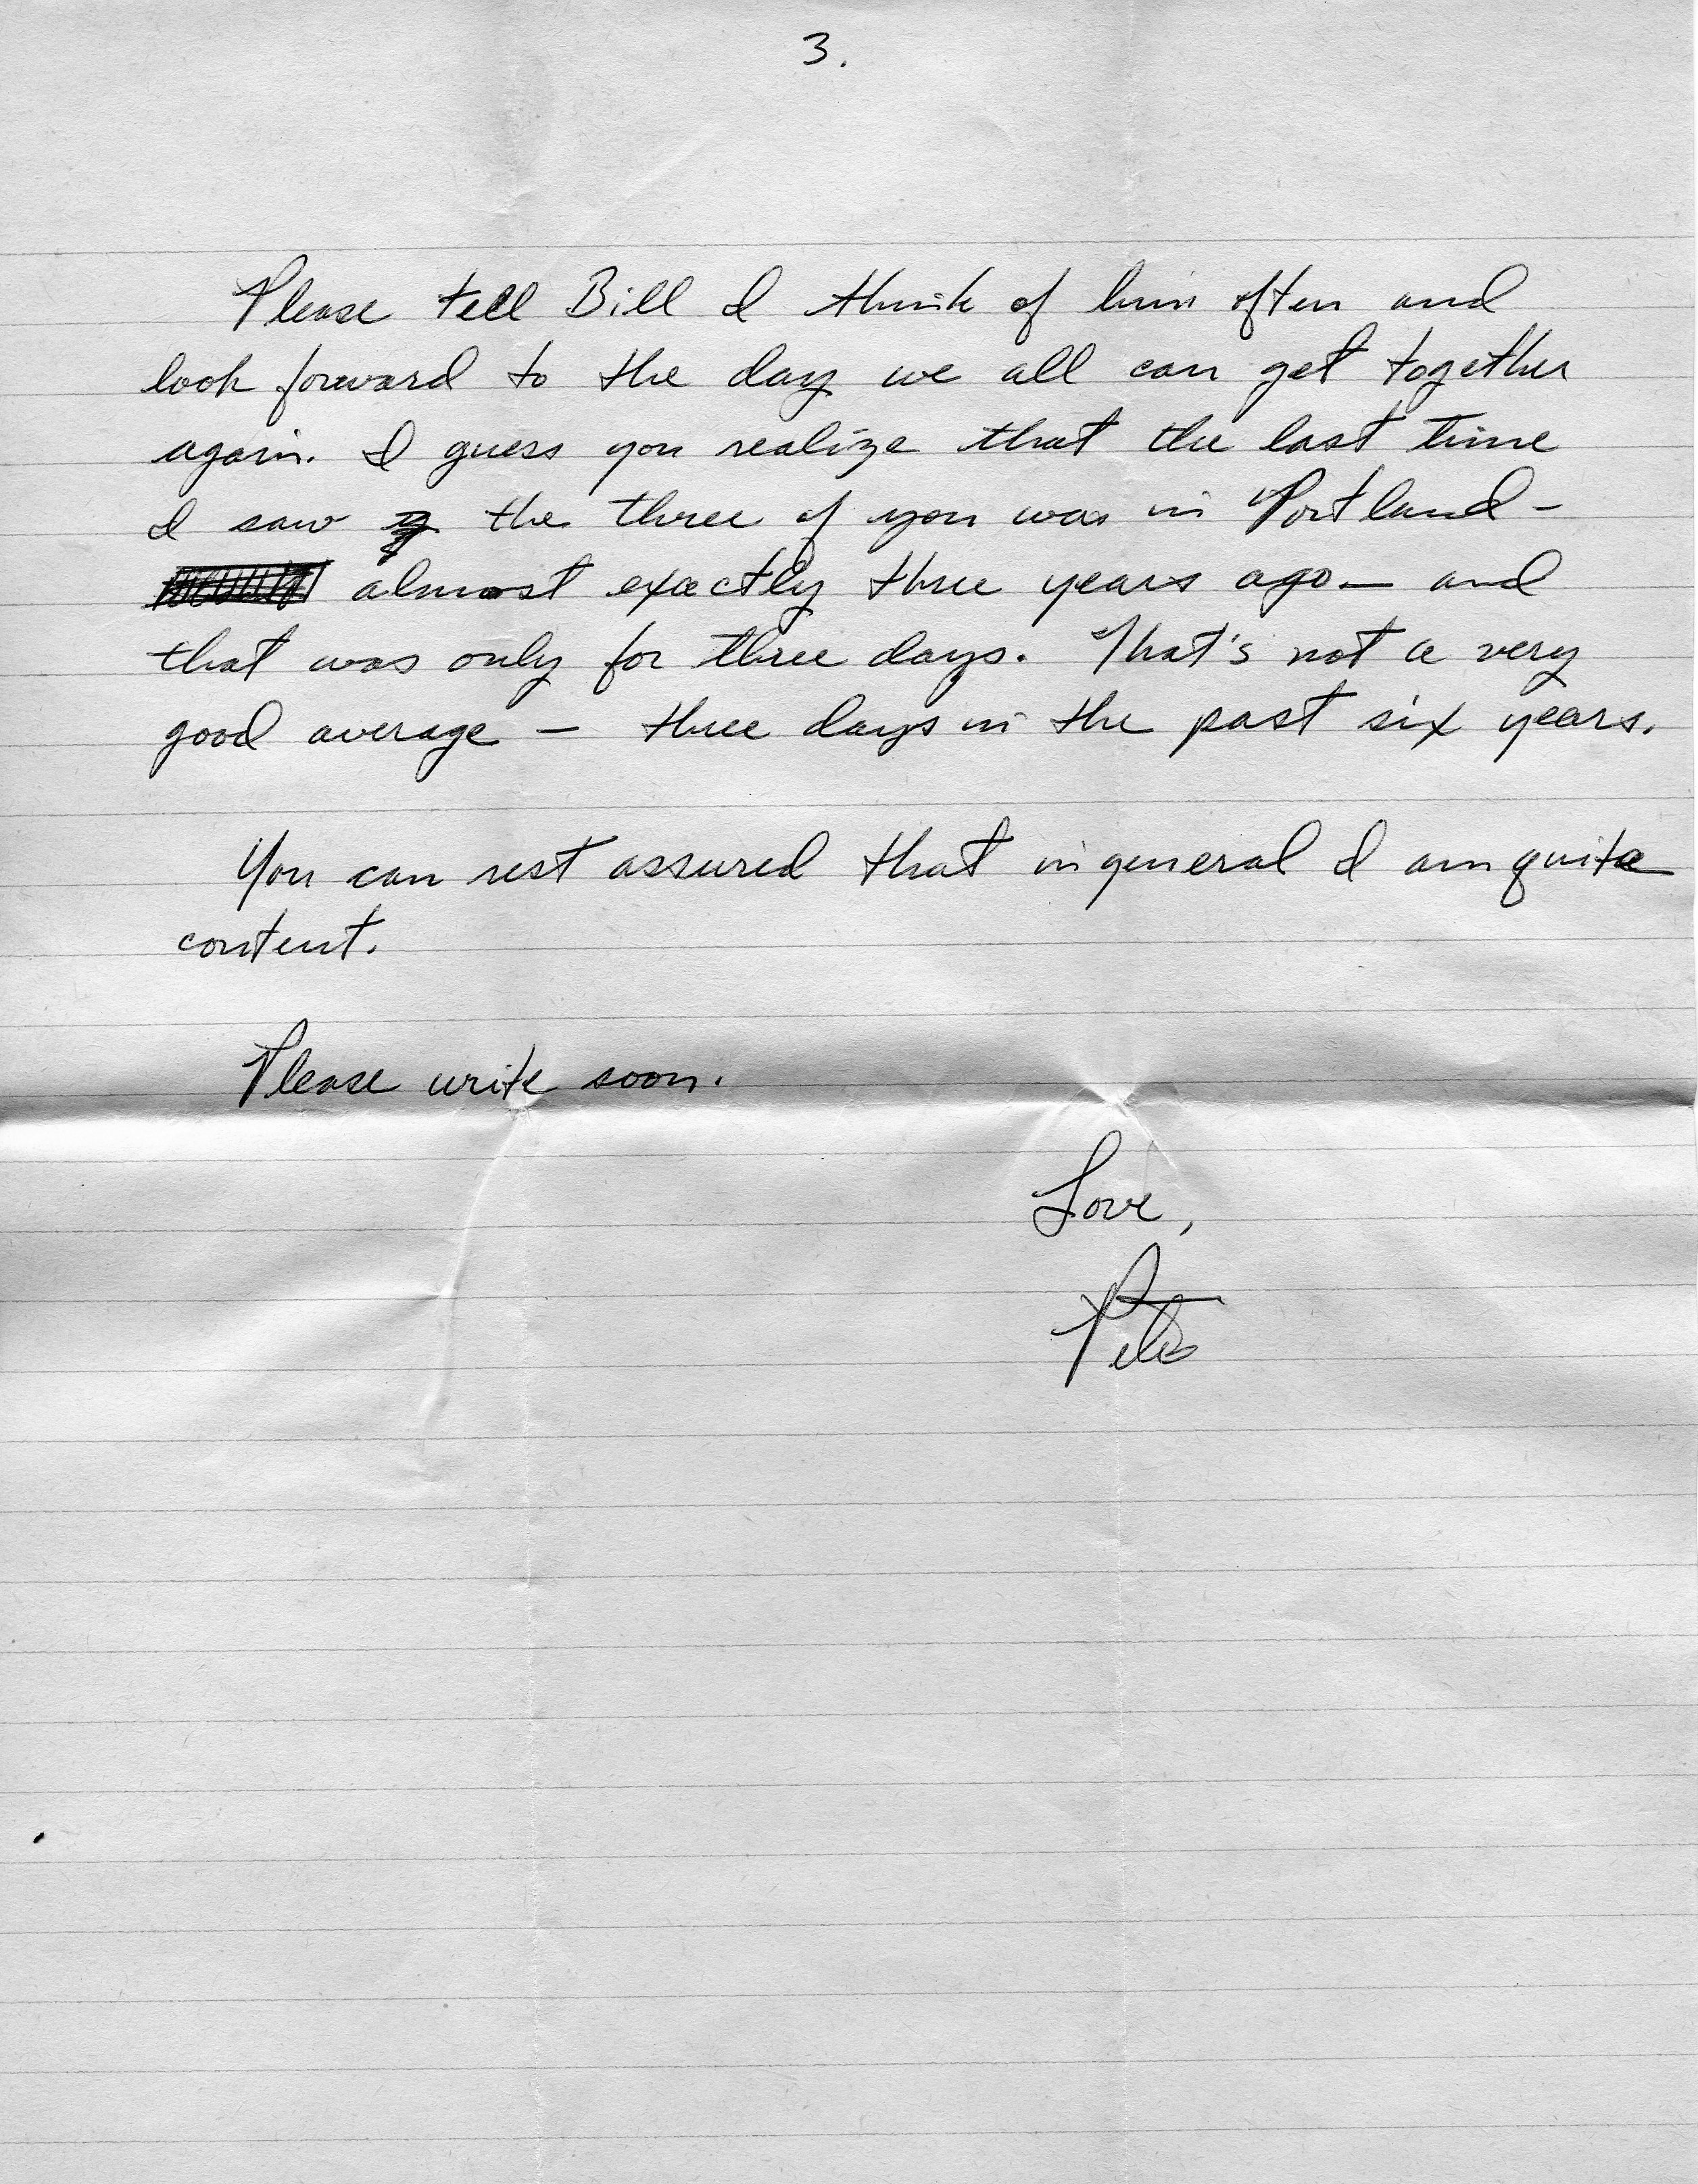 3.
Please tell Bill I think of him often and
look forward to the day we all can get together
again. I guess you realize that the last time
I saw the three of you was in Portland -
almost exactly three years ago - and
that was only for three days. That's not a very
good average - three days in the past six years.
You can rest assured that in general I am quite
content.
Please write soon.
Love,
Pete